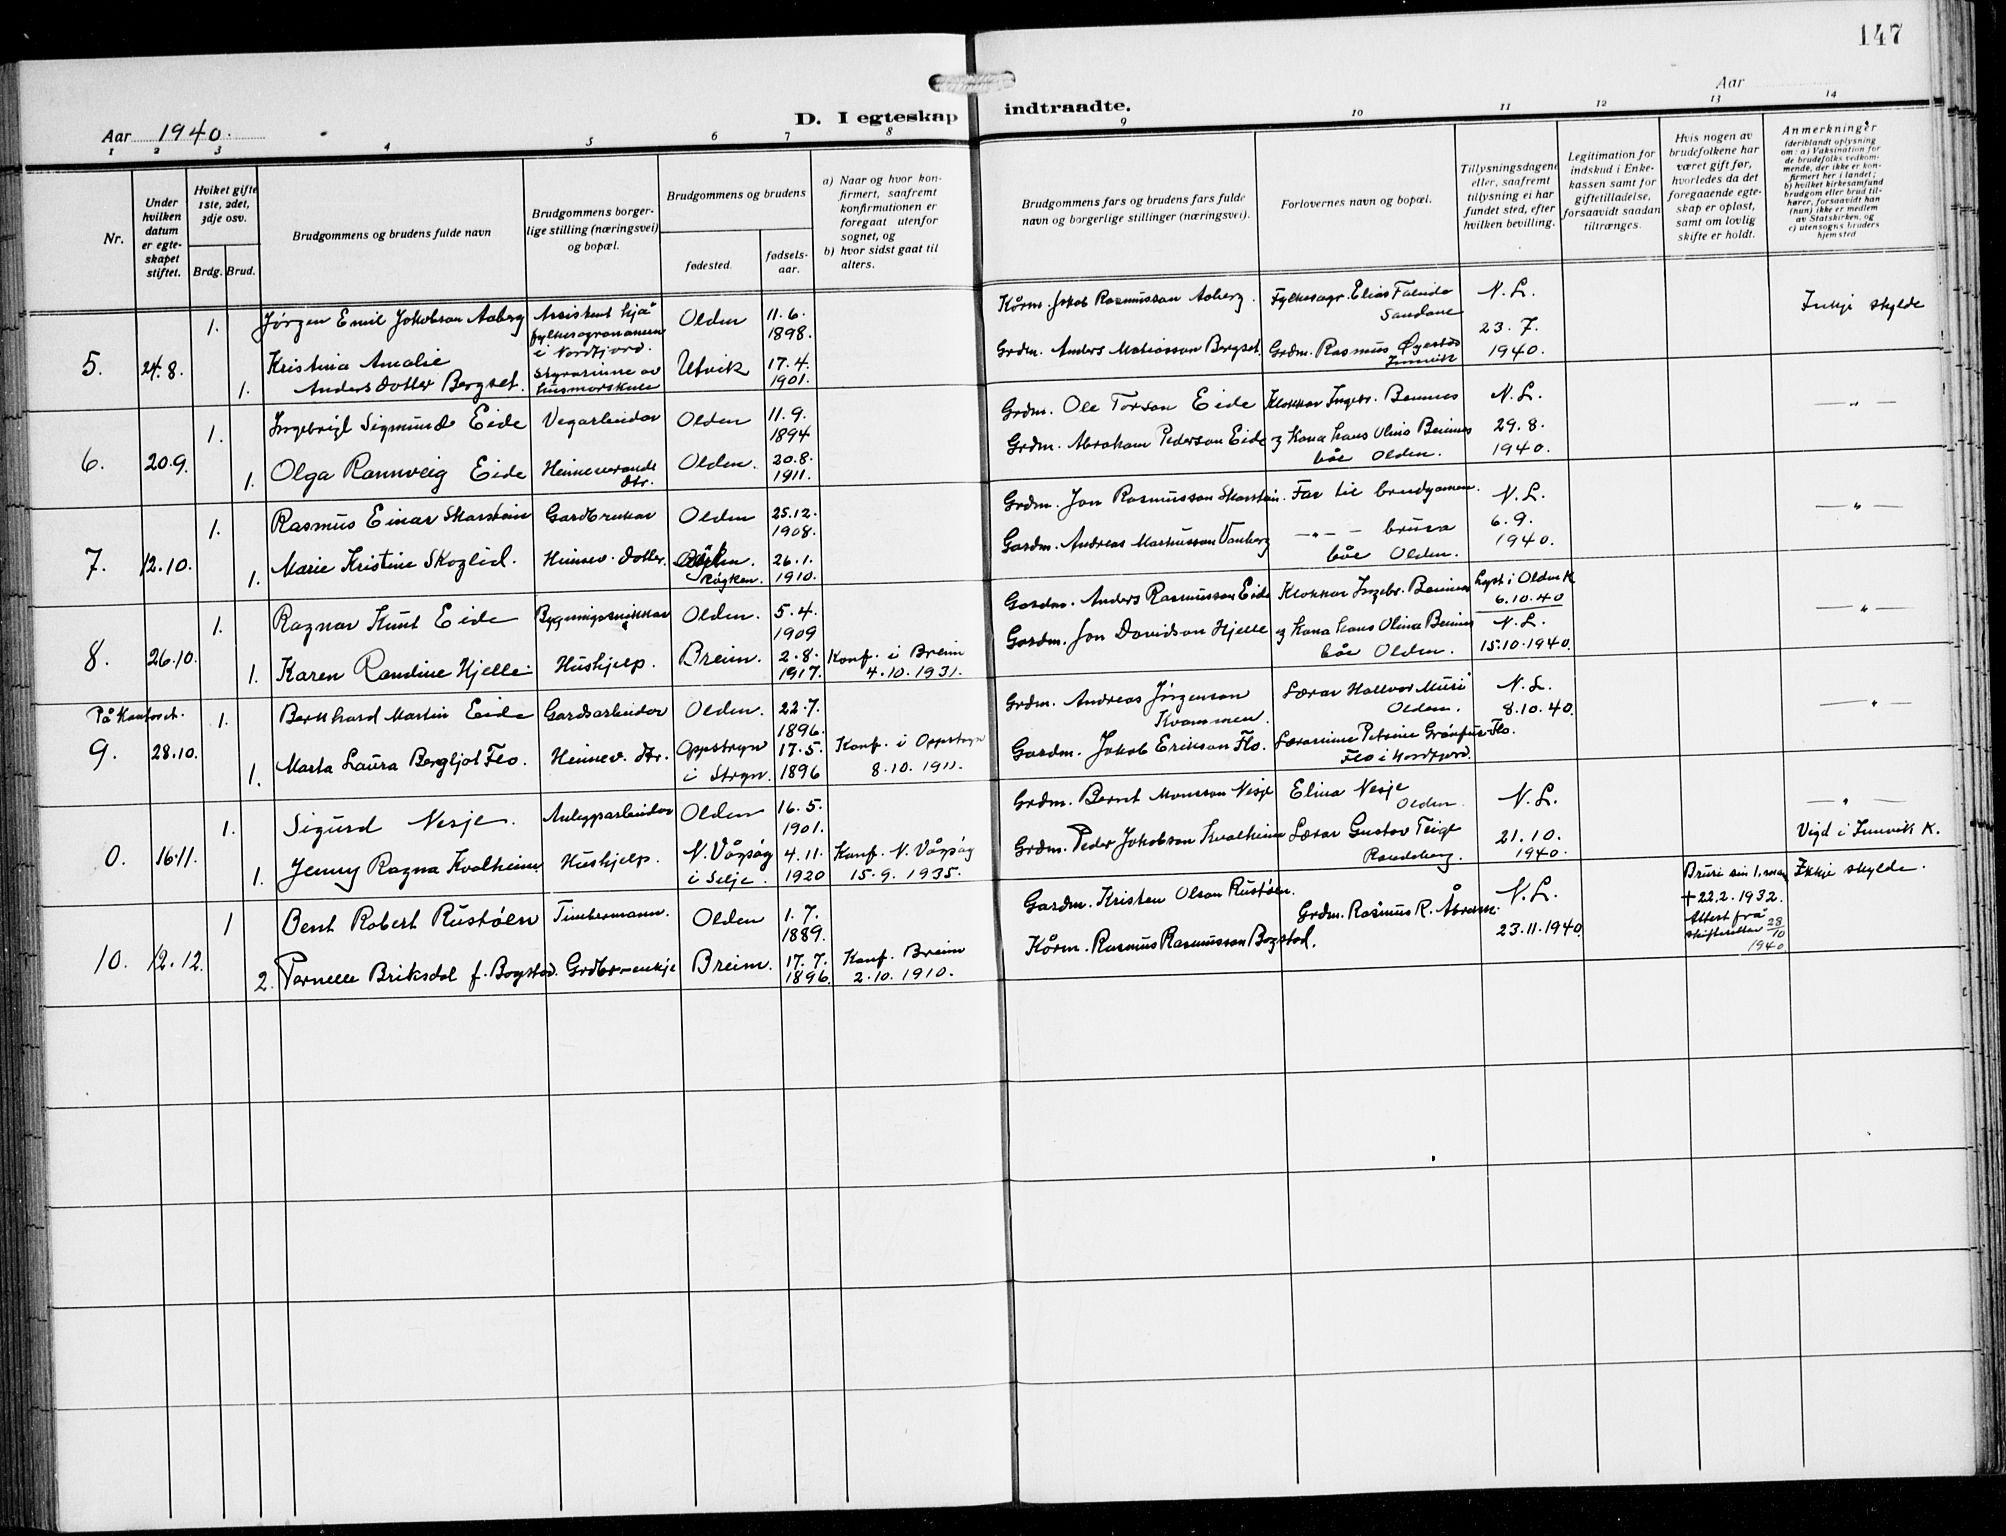 147
Aar 1940.
D. I egteskap indtraadte.
Aar
1 2 3 4 5 6 7 8 9 10 11 12 13 14
Nr.
Under hvilken datum er egteskapet stiftet.
Hviket gifte 1ste, 2det, 3dje osv.
Brdg. Brud.
Brudgommens og brudens fulde navn
Brudgommens borgerlige stilling (næringsvei) og bopæl.
Brudgommens og brudens
fødested.
fødselsaar.
a) Naar og hvor konfirmert, saafremt konfirmationen er foregaat utenfor sognet, og
b) hvor sidst gaat til alters.
Brudgommens fars og brudens fars fulde navn og borgerlige stillinger (næringsvei).
Forlovernes navn og bopæl.
Tillysningsdagene eller, saafremt tillysning ei har fundet sted, efter hvilken bevilling.
Legitimation for indskud i Enkekassen samt for giftetilladelse, forsaavidt saadan tiltrænges.
Hvis nogen av brudefolkene har været gift før, hvorledes da det foregaaende egteskap er opløst, samt om lovlig skifte er holdt.
Anmerkninger (deriblandt oplysning om: a) Vaksination for de brudefolks vedkommende, der ikke er konfirmert her i landet; b) hvilket kirkesamfund brudgom eller brud tilhører, forsaavidt han (hun) ikke er medlem av Statskirken, og c) utensogns bruders hjemsted
5. 24.8. 1. Jørgen Emil Jakobson Aaberg Assistent hjå fylkesagronomen i Nordfjord. Olden 11.6. 1898. Kårm. Jakob Rasmusson Aaberg. Fylkesagr. Elias Sandane N. L. 23.7. 1940. Inkje skylde
1. Kristina Amalie Andersdotter Bergset. Styrarinne av husmorskule Utvik 17.4. 1901. Grdm. Anders Matiasson Bergset. Grdm. Rasmus Innvik
6. 20.9. 1. Ingebrigt Sigmund Eide Vegarbeidar Olden 11.9. 1894 Grdm. Ole Torson Eide Klokkar Ingebr. Bennes N. L. 29.8. 1940. — " —
1. Olga Rannveig Eide Heimeverande dtr. Olden. 20.8. 1911. Grdm. Abraham Pederson Eide og Kona hans Olina Bennes båe Olden.
7. 12.10. 1. Rasmus Einar Skarstein Gardbrukar Olden 25.12. 1908. Grdm. Jon Rasmusson Skarstein. Far til brudgomen. N. L. 6.9. 1940. — " —
1. Marie Kristine Skoglid. Heimev. dotter. Røyken. 26.1. 1910. Gardm. Andreas Markusson Vanberg — " — brura båe Olden.
8. 26.10. 1. Ragnar Knut Eide Bygningssnikkar Olden. 5.4. 1909 Gardm. Anders Rasmusson Eide Klokkar Ingebr. Bennes Lyst i Olden K 6.10.40 — " —
1. Karen Randine Hjelle. Hushjelp. Breim. 2.8. 1917. Konf. i Breim 4.10.1931. Gardm. Jon Davidson Hjelle og Kona hans Olina Bennes båe Olden. N. L. 15.10.1940.
På Kontoret.
9. 28.10. 1. Bernhard Martin Eide Gardsarbeidar Olden. 22.7. 1896. Grdm. Andreas Jørgenson Kvammen. Lærar Hallvor Muri Olden. N. L. 8.10.40. — " —
1. Marta Laura Bergljot Flo. Heimev. dtr. Oppstryn i Stryn. 17.5. 1896 Konf. i Oppstryn 8.10.1911. Gardm. Jakob Erikson Flo. Lærarinne Petrine Flo. Flo i Nordfjord.
0. 16.11. 1. Sigurd Nesje. Anleggsarbeidar Olden 16.5. 1901. Grdm. Bernt Monsson Nesje Elina Nesje Olden. N. L. 21.10. 1940. — " — Vigd i Innvik K.
1. Jenny Ragna Kvalheim. Hushjelp. N. Vågsøy i Selje. 4.11. 1920 Konf. N. Vågsøy 15.9.1935. Grdm. Peder Jakobson Kvalheim Lærar Gustav Teigl Randaberg.
10. 12.12. 1 Bent Robert Rustøen Timbermann. Olden 1.7. 1889. Gardm. Kristen Olson Rustøen. Grdm. Rasmus R. Åbrem. N. L. 23.11.1940. Bruri sin 1. mann + 22.2.1932. Attest frå skifteretten 28/10 1940 Ikkje skylde.
2. Pernelle Briksdal f. Bogstad. Grdbr.-enkje Breim. 17.7. 1896. Konf. Breim 2.10.1910. Kårm. Rasmus Rasmusson Bogstad.